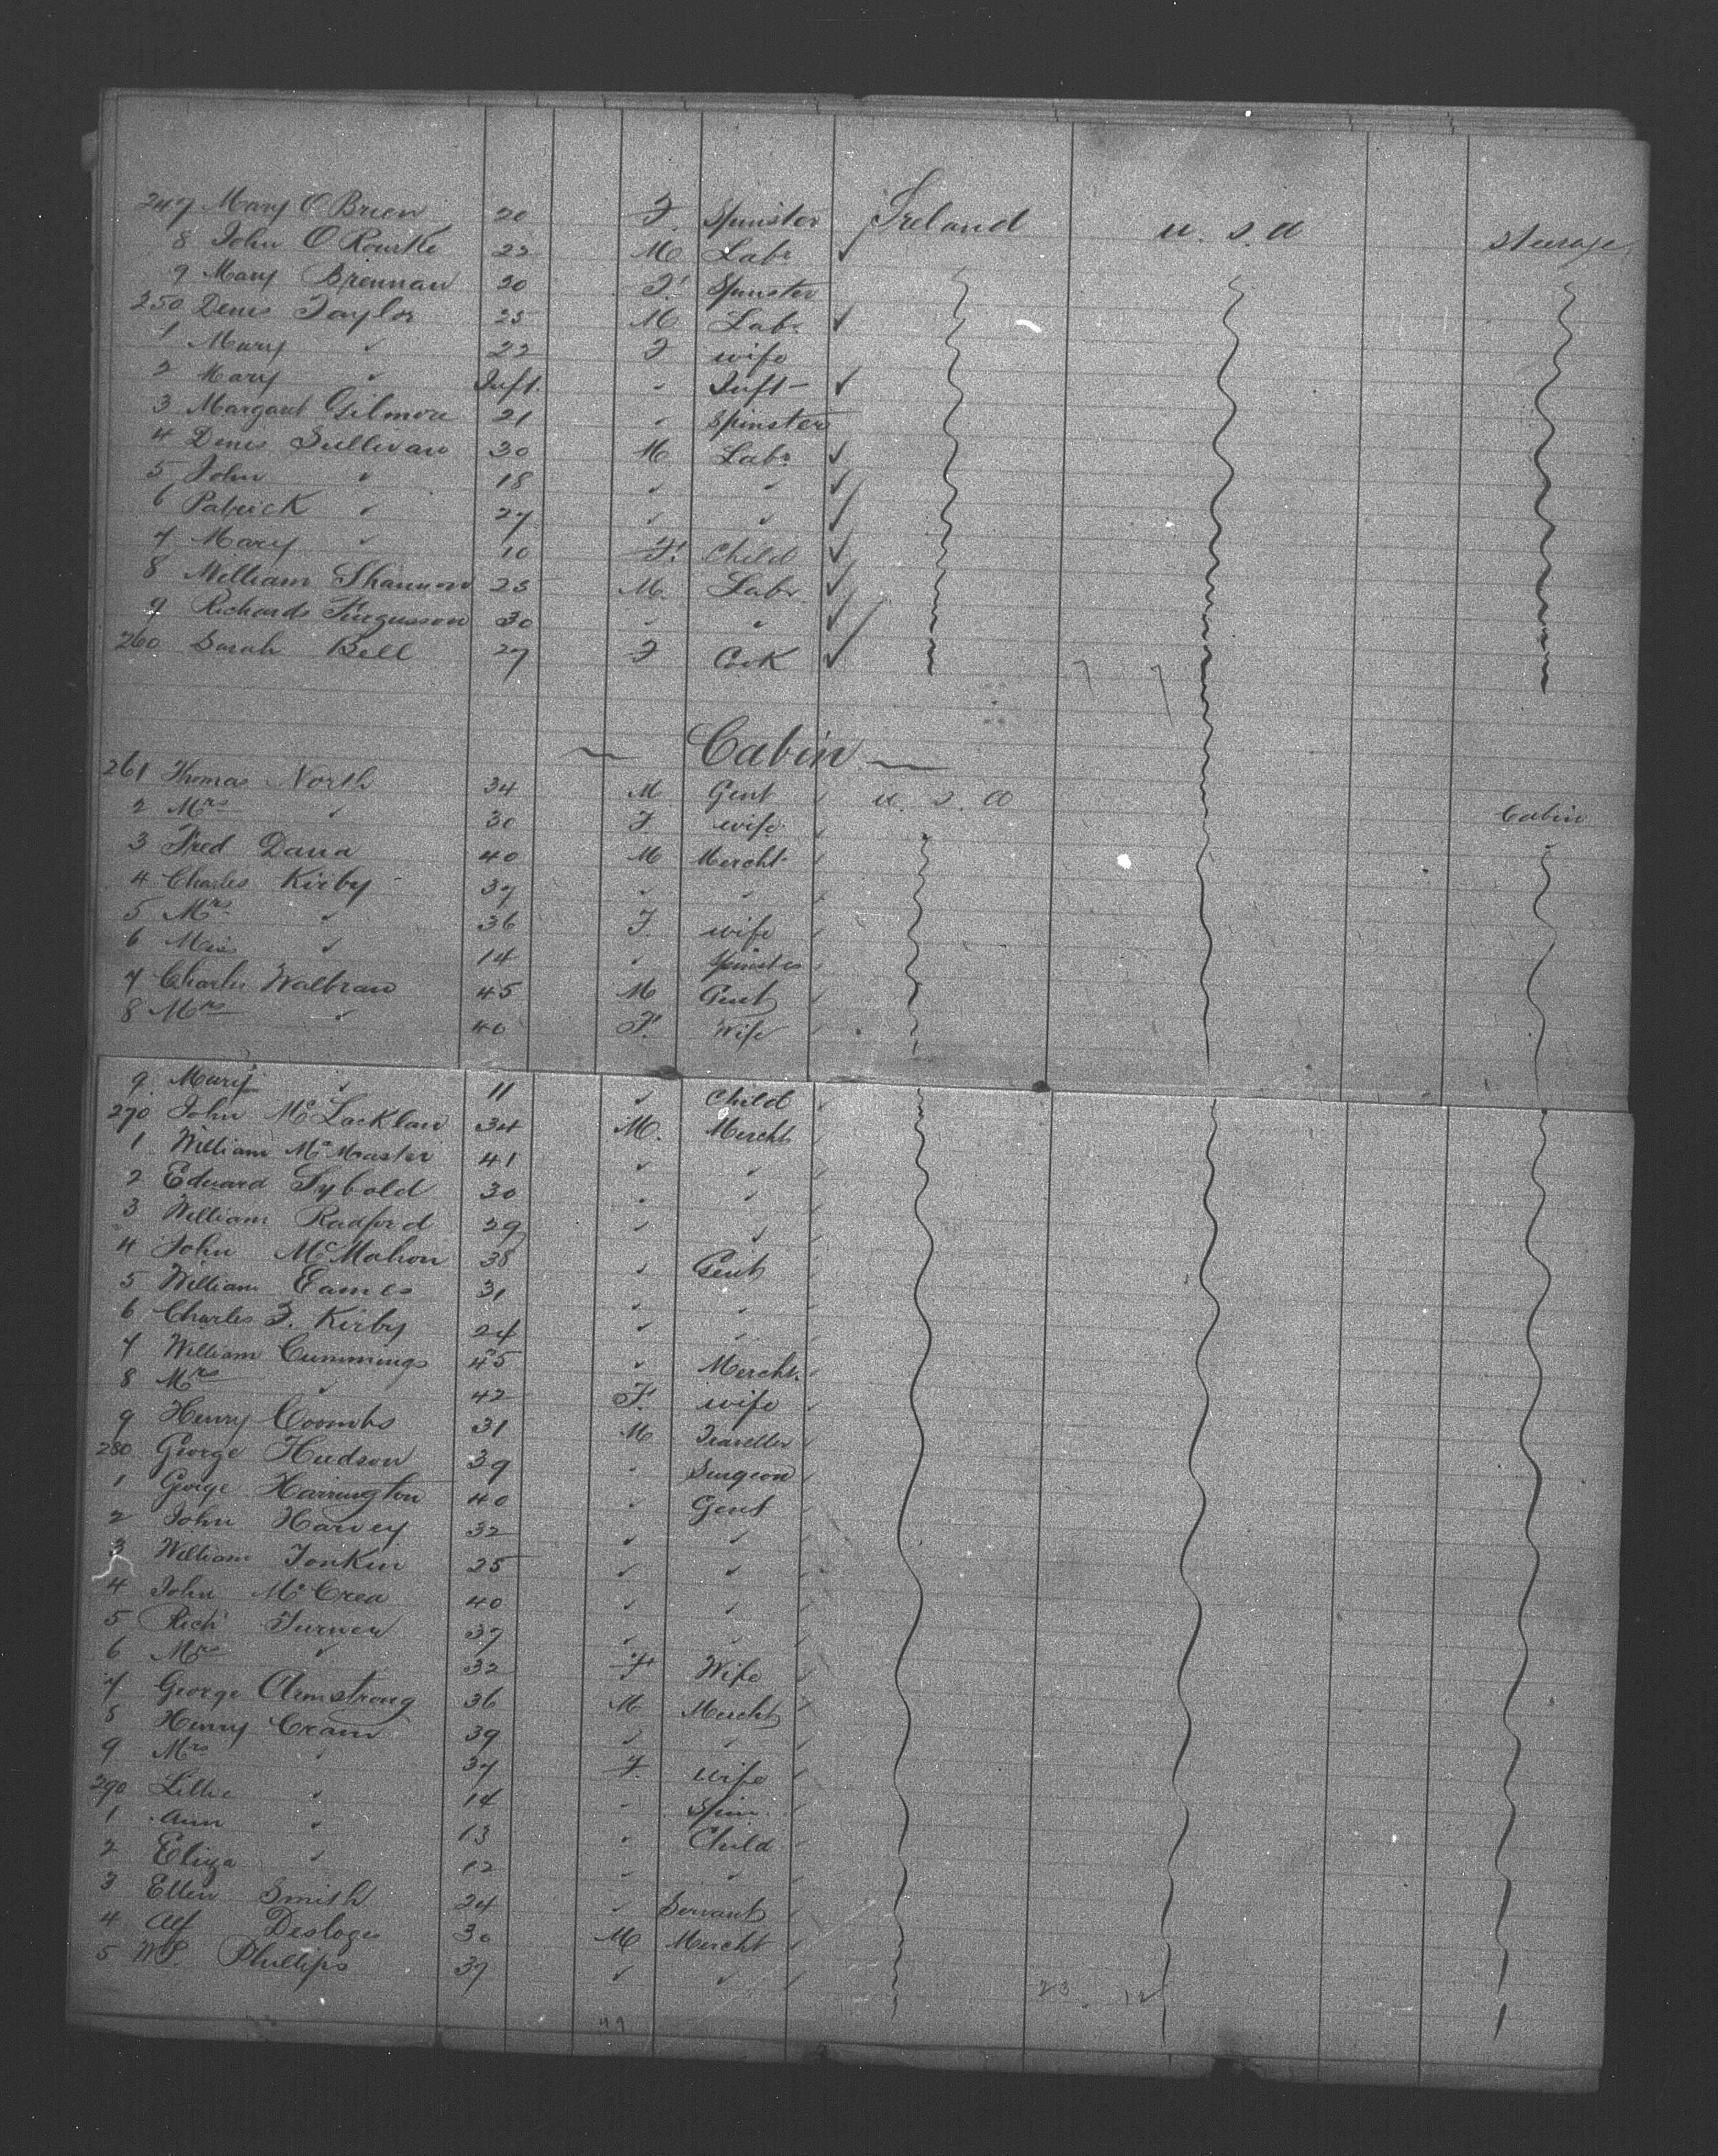 247 Mary O Brien 20 F. Spinster Ireland U. S. A Steerage
8 John O Rourke 22 M Labr ✓
9 Mary Brennan 20 F. Spinster
250 Denis Taylor 25 M Labr ✓
1 Mary ✓ 22 F wife
2 Mary ✓ Inft. " Inft - ✓
3 Margaret Gilmore 21 " Spinster
4 Denis Sullivan 30 M Labr ✓
5 John ✓ 18 ✓ ✓ ✓
6 Patrick ✓ 27 ✓ ✓ ✓
7 Mary ✓ 10 F. Child ✓
8 William Shannon 25 M. Labr ✓
9 Richards Furgusson 30 ✓ ✓ ✓
260 Sarah Bell 27 F Cook ✓
~ Cabin ~
261 Thomas North 34 M Gent U. S. A Cabin
2 Mrs ✓ 30 F wife
3 Fred Dana 40 M Mercht
4 Charles Kirby 37 ✓ ✓
5 Mrs ✓ 36 F. wife
6 Miss ✓ 14 ✓ Spinster
7 Charles Walbran 45 M Gent
8 Mrs ✓ 40 F. Wife
9 Mary ✓ 11 ✓ Child
270 John Mc Lacklan 34 M. Mercht
1 William Mc Master 41 ✓ ✓
2 Edward Sybold 30 ✓ ✓
3 William Radford 29 ✓ ✓
4 John Mc Mahon 38 ✓ Gent
5 William Eames 31 ✓ ✓
6 Charles F. Kirby 24 ✓ ✓
7 William Cummings 45 ✓ Mercht.
8 Mrs ✓ 42 F. wife
9 Henry Coombs 31 M Traveller
280 George Hudson 39 " Surgeon
1 George Harrington 40 ✓ Gent
2 John Harvey 32 ✓ ✓
3 William Tonkin 25 ✓ ✓
4 John Mc Crea 40 ✓ ✓
5 Richd Turner 37 ✓ ✓
6 Mrs ✓ 32 F Wife
7 George Armstrong 36 M Mercht
8 Henry Cram 39 ✓ ✓
9 Mrs ✓ 37 F. wife
290 Lillie ✓ 14 " Spin.
1 Ann ✓ 13 ✓ Child
2 Eliza ✓ 12 ✓ ✓
3 Ellen Smith 24 ✓ Servant
4 Alf Desloges 30 M Mercht
5 W.P. Phillips 37 ✓ ✓